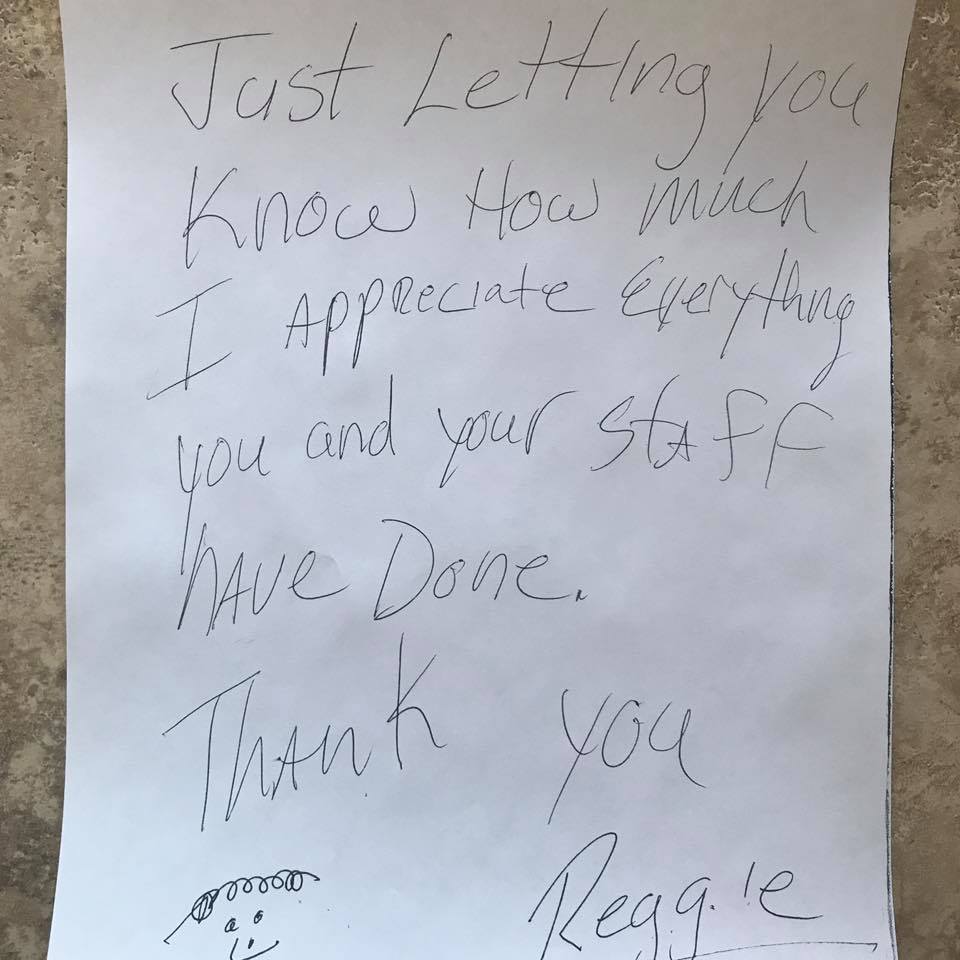 Just Letting you
Know How much
I Appreciate Everything
you and your Staff
have Done.
Thank you
Reggie